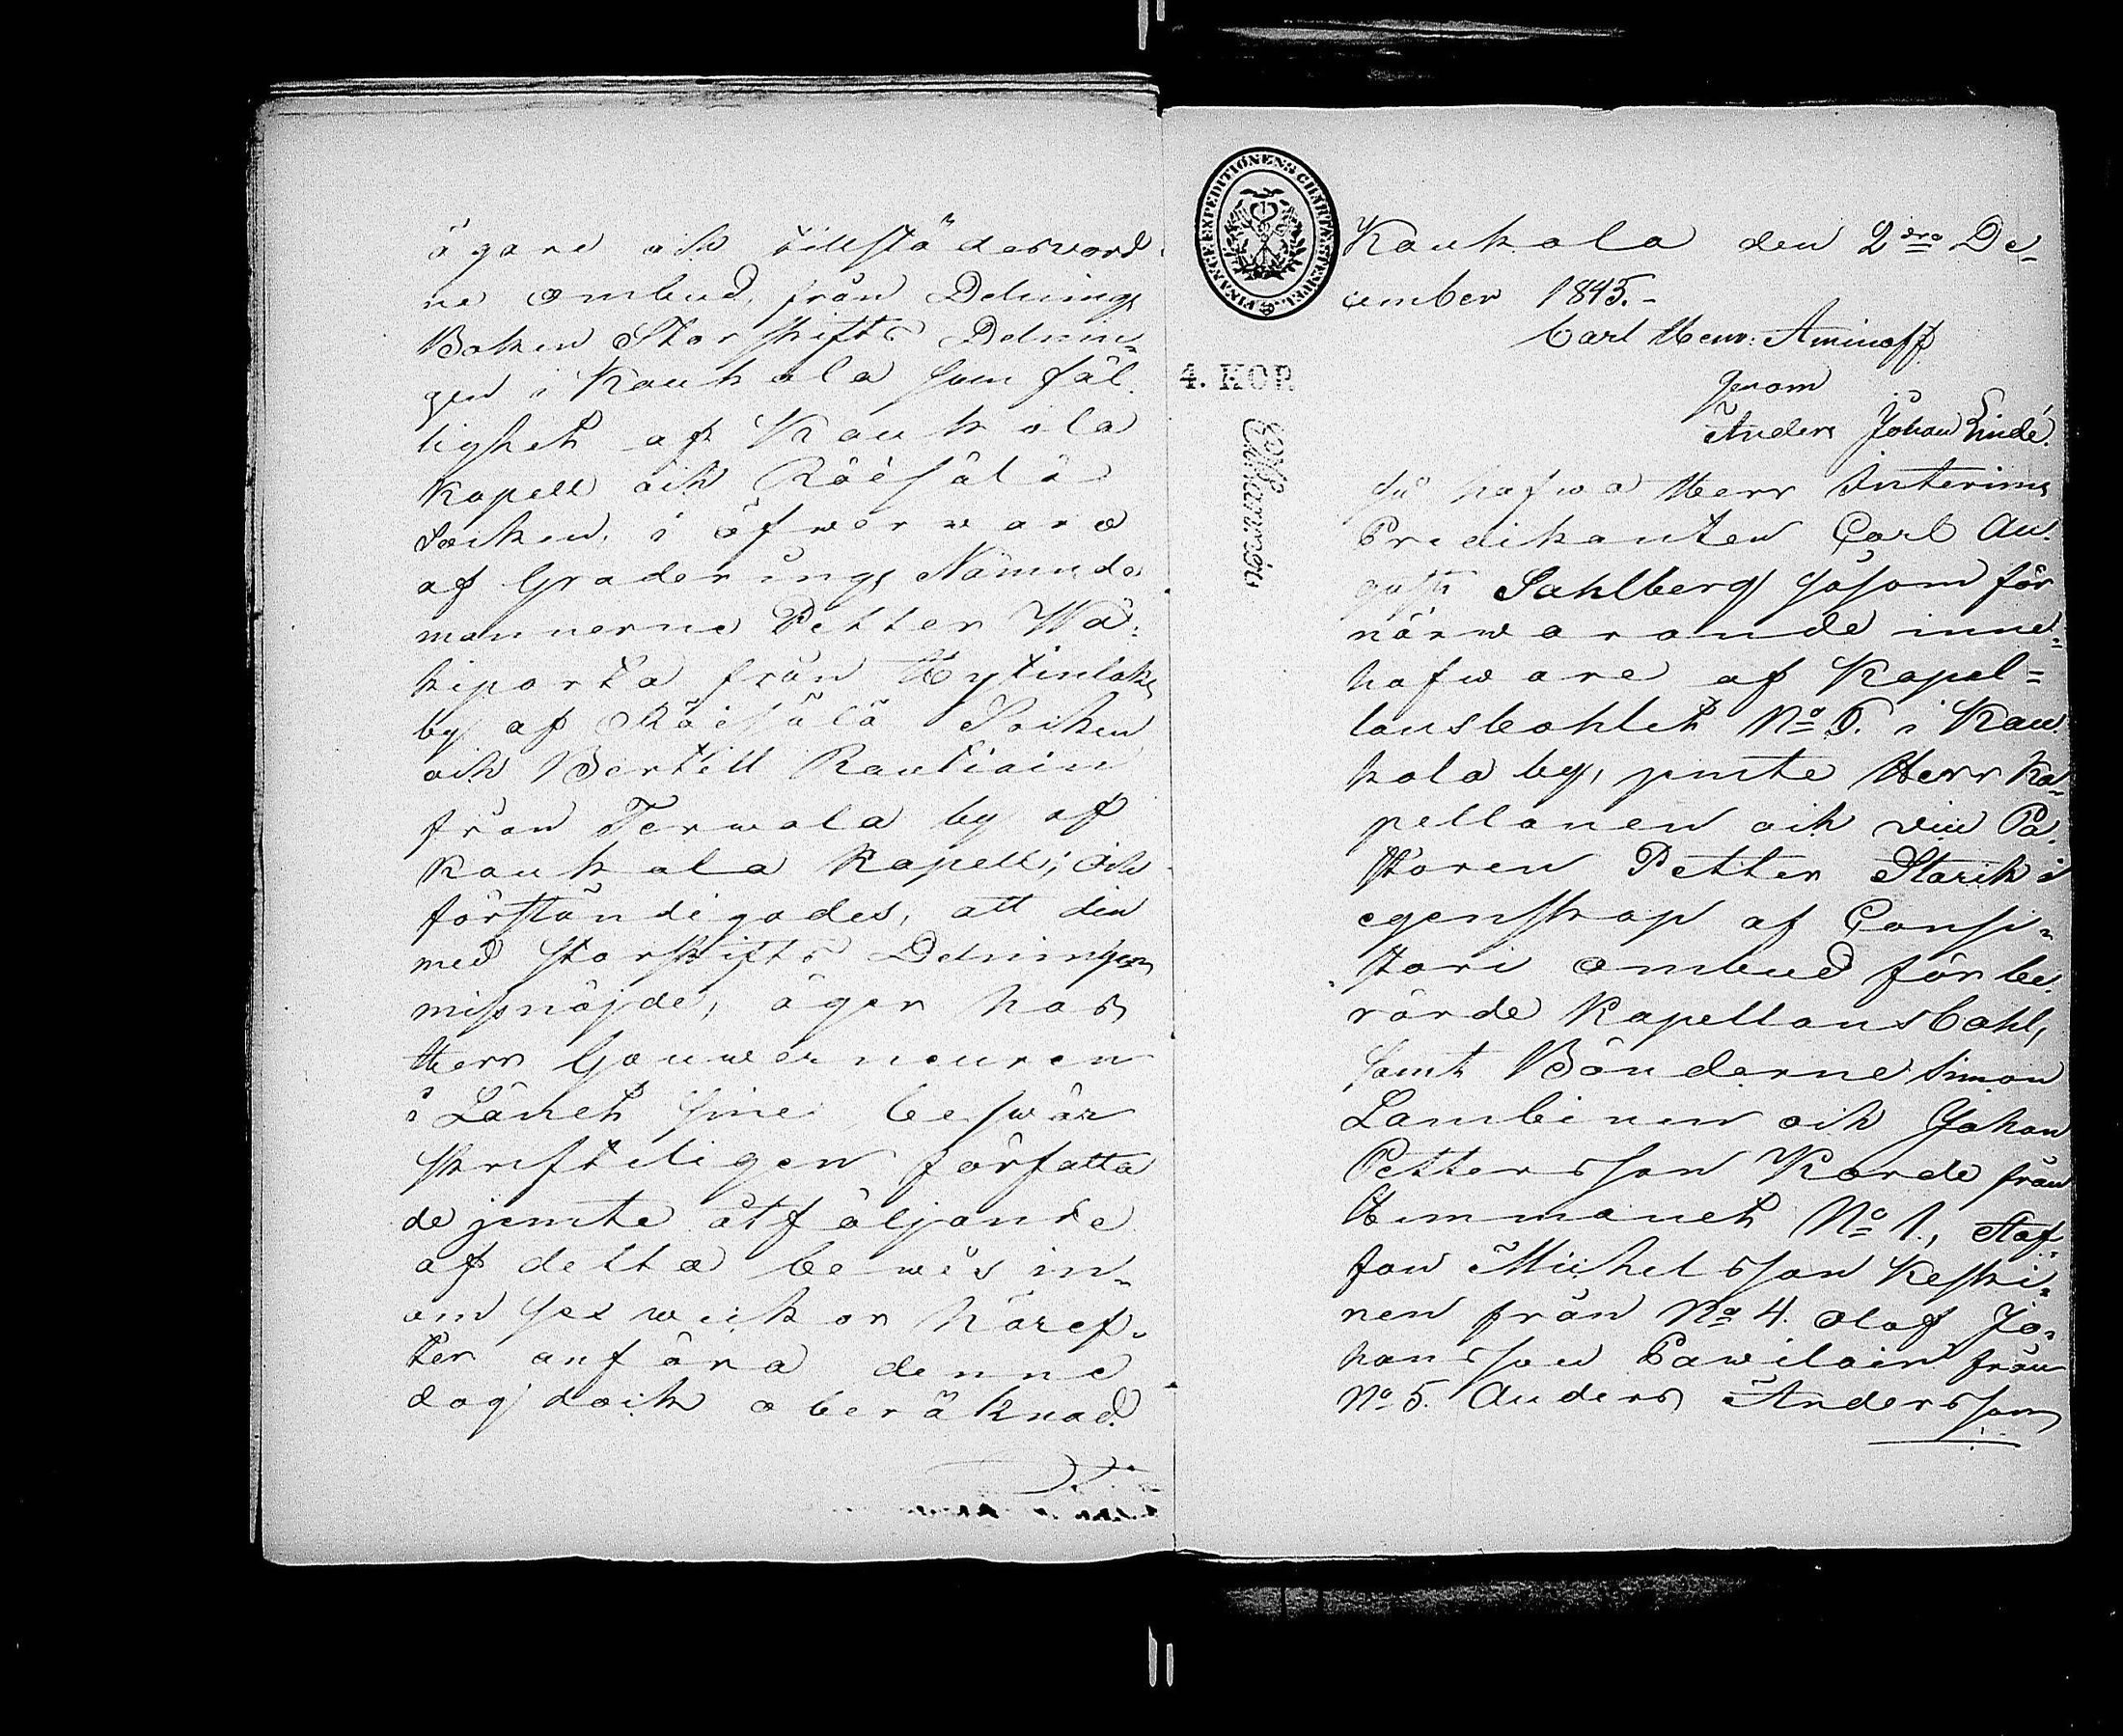 ägare och tillstädesvord
ne ombud, från Delnings
Boken Storskifts Delnin-
gen i Kaukola sam fäl
lighet af Kaukola
Kapell och Räisälä
Socken, i öfwerwaro
af Graderings Nämnde
mannerne Petter Wä-
kiparta från Hytinlaks
by af Räisälä Socken
och Bertill Rautiain
från Terwala by af
Kaukola Kapell; och
förständigades, att den
med Storskifts Delningen
missnöjde, äger hos
Herr Gouwerneuren
i Länet sine beswär
skrifteligen författa
de jemte åtföljande
af detta bewis in-
om sex weckor häref-
ter anföra denne
dag dock oberäknad.
FINANCE EXPEDITIONENS CHARTÆ STEMPEL
4. KOP.
Kaukola den 2dra De-
cember 1845.-
Carl Henr: Aminoff
genom
Anders Johan Lindé.
Så hafwa Herr Interims
Predikanten Carl Au-
gust Sahlberg såsom för
närwarande inne-
hafware af Kapel=
lansbohlet No 6. i Kau
kola by, jemte Herr Ka-
pellanen och vice Pa-
storen Petter Starck i
egenskap af Consi-
stori ombud för be-
rörde Kapellans Bohl,
samt Bönderne Simon
Lambinen och Johan
Pettersson Korde från
Hemmanet No 1., Staf-
fan Michelsson Keski-
nen från No 4. Olof Jo-
hansson Pawilain från
No 5. Anders Andersson